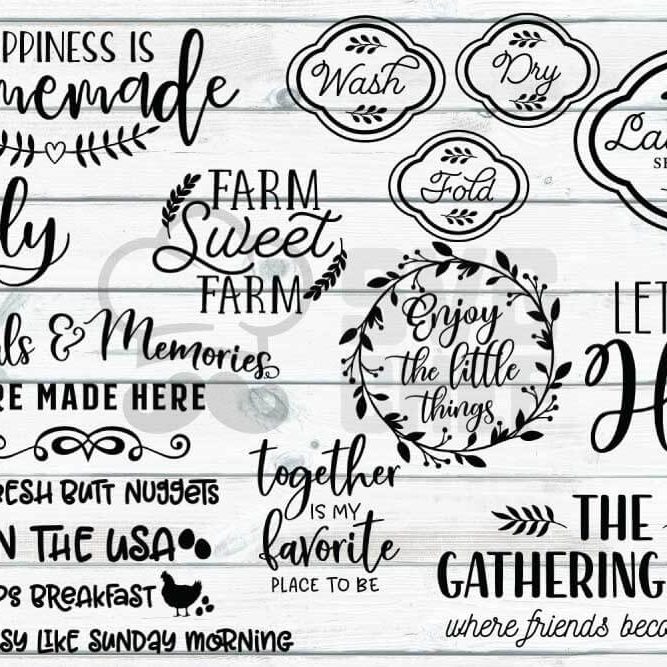 PPINESS IS
memade
Wash
Dry
Fold
La
ly
FARM
Sweet
FARM
ls & Memories
RE MADE HERE
Enjoy
the little
things
LET
H
RESH BUTT NUGGETS
N THE USA
PS BREAKFAST
SY LIKE SUNDAY MORNING
together
IS MY
favorite
PLACE TO BE
THE
GATHERING
where friends beco